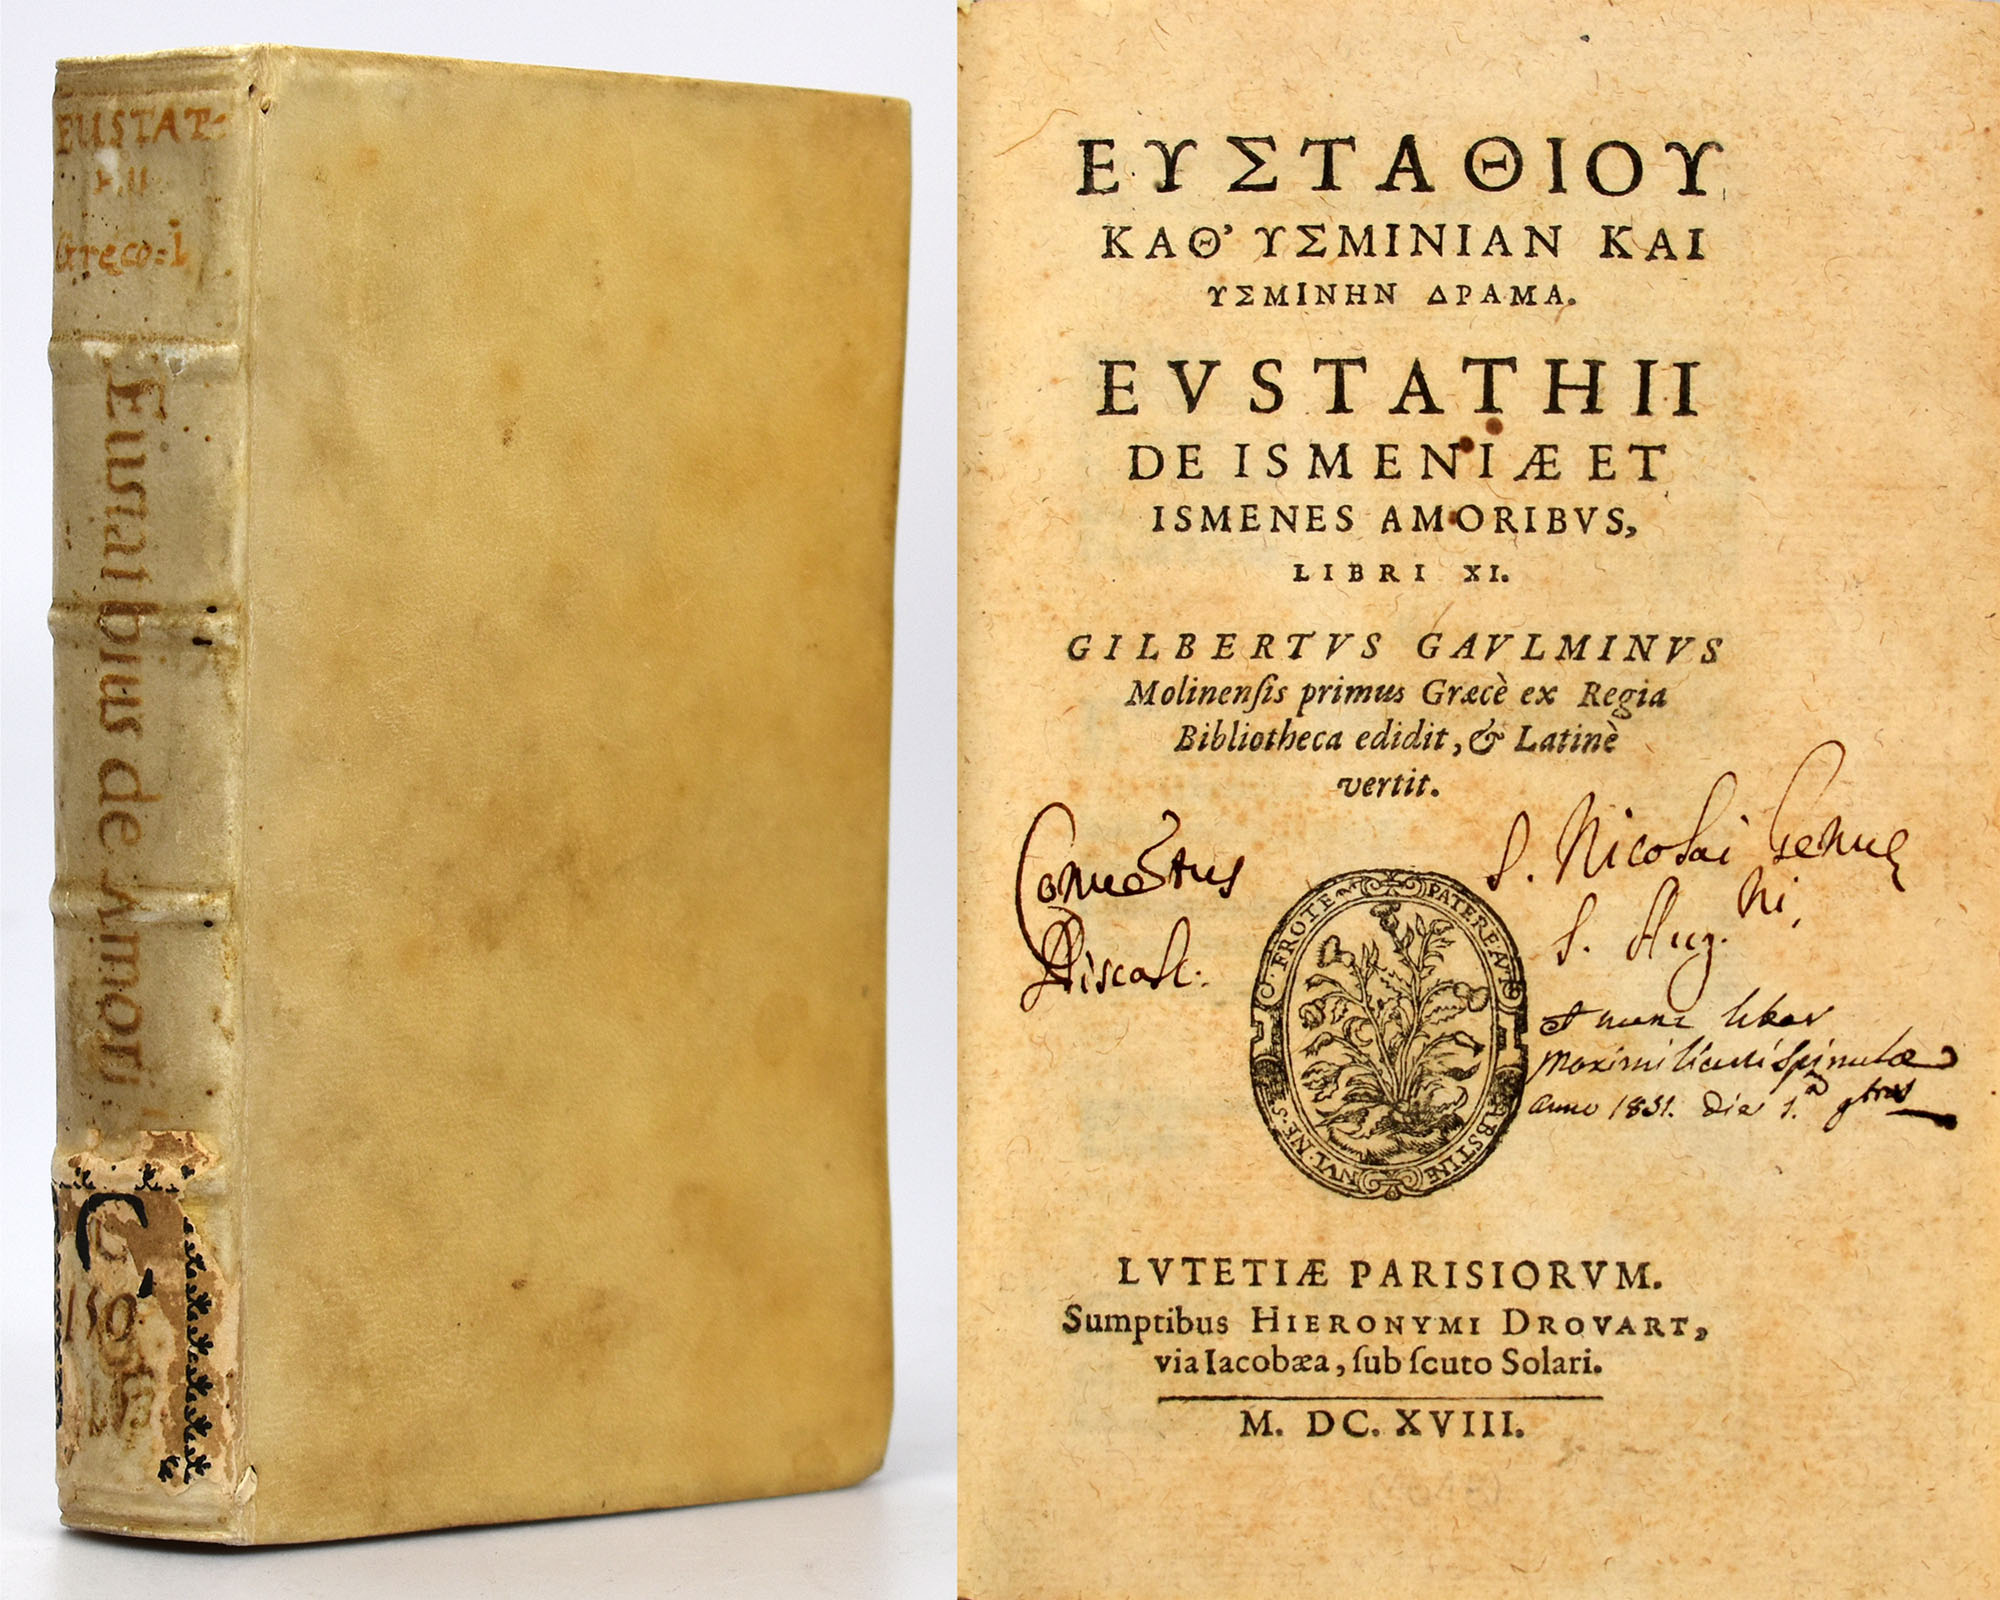 EUSTAT-
HII
Gręco-l
Eustathius de Amori
150
ΕΥΣΤΑΘΙΟΥ
ΚΑΘ' ΥΣΜΙΝΙΑΝ ΚΑΙ
ΥΣΜΙΝΗΝ ΔΡΑΜΑ.
EVSTATHII
DE ISMENIÆ ET
ISMENES AMORIBVS,
LIBRI XI.
GILBERTVS GAVLMINVS
Molinenſis primus Græcè ex Regia
Bibliotheca edidit, & Latinè
vertit.
Conuẽtus S. Nicolai Genuę
Discalc. S. Aug.ni.
et nunc liber
Maximiliani Spinulæ
anno 1831. die 1.a
C. FROTE PATEREAVT ABSTINE NVL. NE. S.
LVTETIÆ PARISIORVM.
Sumptibus HIERONYMI DROVART,
via Iacobæa, ſub ſcuto Solari.
M. DC. XVIII.